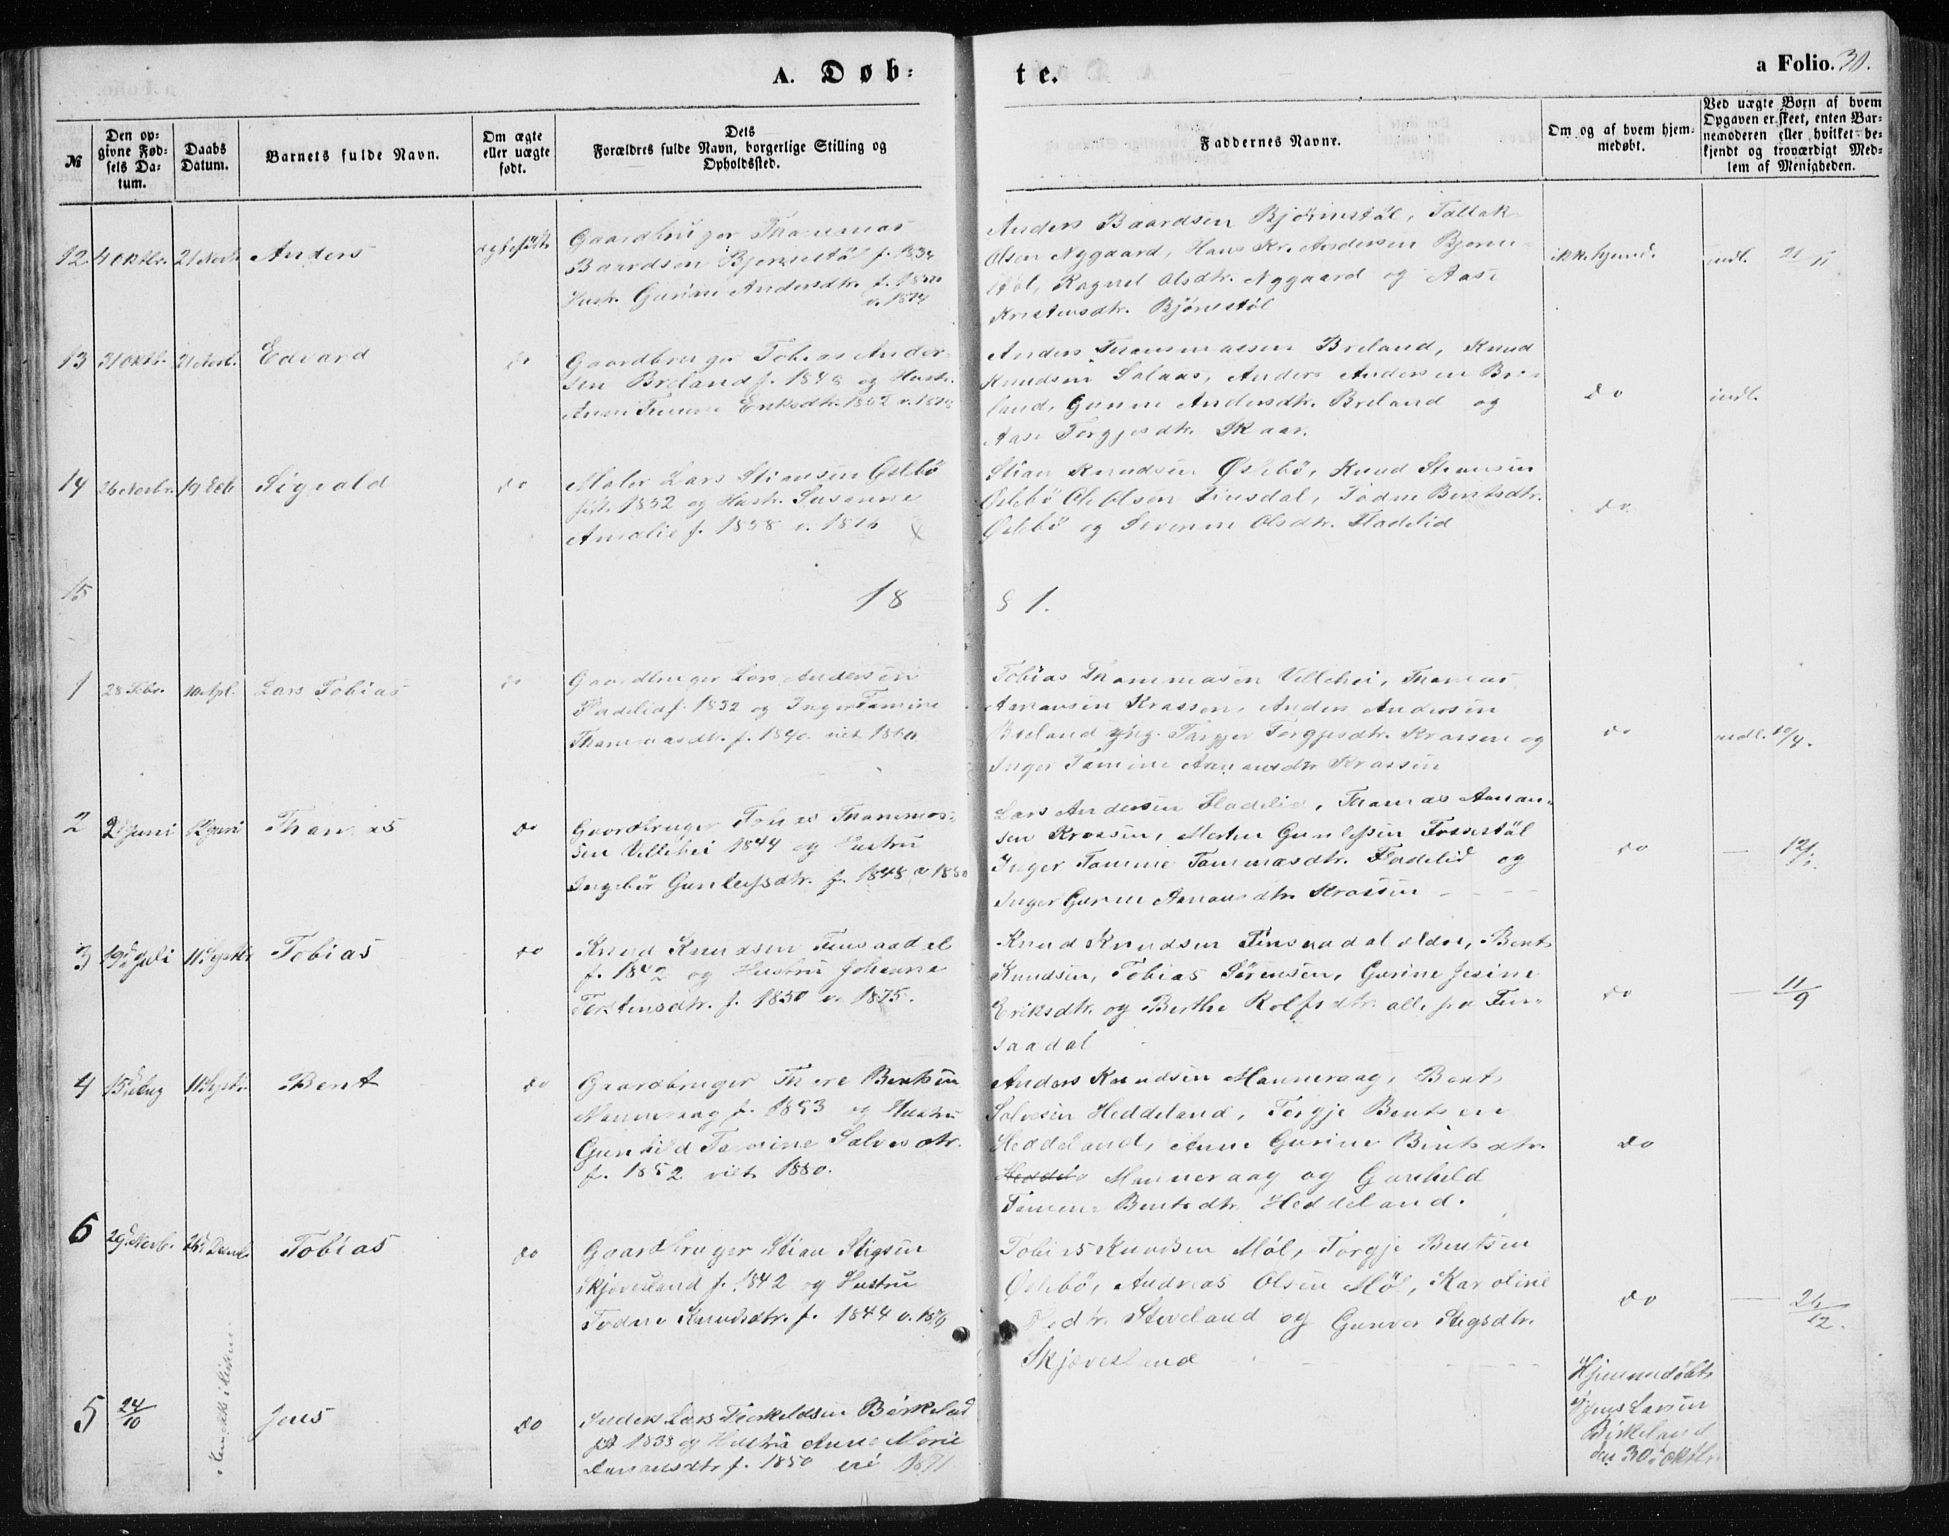 A. Døb-
te.
a Folio. 30.
№
Den op-
givne Fød-
sels Da-
tum.
Daabs
Datum.
Barnets fulde Navn.
Om ægte
eller uægte
født.
Dets
Forældres fulde Navn, borgerlige Stilling og
Opholdssted.
Faddernes Navne.
Om og af hvem hjem-
medøbt.
Ved uægte Børn af hvem
Opgaven er skeet, enten Bar-
nemoderen eller hvilket be-
kjendt og troværdigt Med-
lem af Menigheden.
12 4 Oktbr. 21 Novb. Anders
Gaardbruger Thommas
Baardsen Bjørnestøl f.
Hustr. Gurine Andersdtr. f.
v. 1874
Anders Baardsen Bjørnstøl, Tallak
Olsen Nygaard, Hans Kr. Andersen Bjorne
støl, Ragnel Olsdtr. Nygaard og Aase
Kristensdtr. Bjørnestøl
indl. 21/11
13 31 Oktb. 21 Novb. Edvard do
Gaardbruger Tobias Ander-
sen Breland f. 1848 og Hustr.
Eriksdtr.
Anders Thommassen Breland, Knud
Knudsen Salaas, Anders Andersen Bre-
land, Gunne Andersdtr. Breland og
Aase Torgjesdtr. Skaar.
do indl.
14 26 Novbr. 19 Sigvald do
Maler Lars Stiansen Øslebø
født 1852 og Hustr. Susanne
Amalie f. 1858 v.
Stian Knudsen Øslebø, Knud Stiansen
Øslebø Ole Olsen Finsdal, Todne Bentsdtr.
Øslebø og Severine Olsdtr. Fladelid
do
15
18
81.
1 28 Febr. 10 Apl. Lars Tobias do
Gaardbruger Lars Andersen
Fladelid f. 1832 og Inger Tamine
Thommasdtr. f. 1840 vit 1860
Tobias Thommasen Villehei, Thomas
Aanansen Krossen, Anders Andersen
Breland yng. Torgjer Torgjesdtr. Krossen og
Inger Tamine Aanansdtr Krossen
do indl. 10/4.
2 2 Juni 12 Juni Thomas do
Gaardbruger Tønes Thommas-
sen Villehei 1844 og Hustru
Ingebör Gunleifsdtr. f. 1848 v 1880
Lars Andersen Fladelid, Thomas Aanan-
sen Krossen, Morten Gunlefsen Fossestøl
Inger Tomine Tommasdtr. Fladelid og
Inger Gurine Aanansdtr Krossen
do —
3 19d Juli 11 Septbr Tobias do
Knud Knudsen Finsaadal
f. 1842 og Hustru Johanne
Torstensdtr. f. 1850 v. 1875.
Knud Knudsen Finsaadal ældre, Bent
Knudsen, Tobias Sørensen, Gurine Jesine
Eriksdtr og Berthe Rolfsdtr alle fra Fin-
saadal
do — 11/9
4 15d Aug 11 Septbr. Bent do
Gaardbruger Thore Bentsen
Manneraag f. 1853 og Hustru
Gunhild Tomine Salvesdtr.
f. 1852 vit 1880.
Anders Knudsen Manneraag, Bent
Salvesen Heddeland, Torgje Bentsen
Heddeland, Anne Gurine Bentsdtr.
Manneraag og Gunhild
Tomine Bentsdtr Heddeland.
do
6 29d Novb. 26d Decbr Tobias do
Gaardbruger Stian Stigsen
Skjævesland f. 1842 og Hustru
Todne Knudsdtr. f. 1844 v.
Tobias Knudsen Møl, Torgje Bentsen
Øslebø, Andreas Olsen Møl, Karoline
Pedr. Stiveland og Gunvor Stigsdtr.
Skjævesland
do — 26/12.
5 24/10 Jens do
Inders. Lars Terkeldsen Birkeland
født 1838 og Hustru Anne Marie
Aanansdtr f. 1850 vi 1871
Hjemmedøbt
af Jens Larsen
Birkeland
den 30 Oktbr.